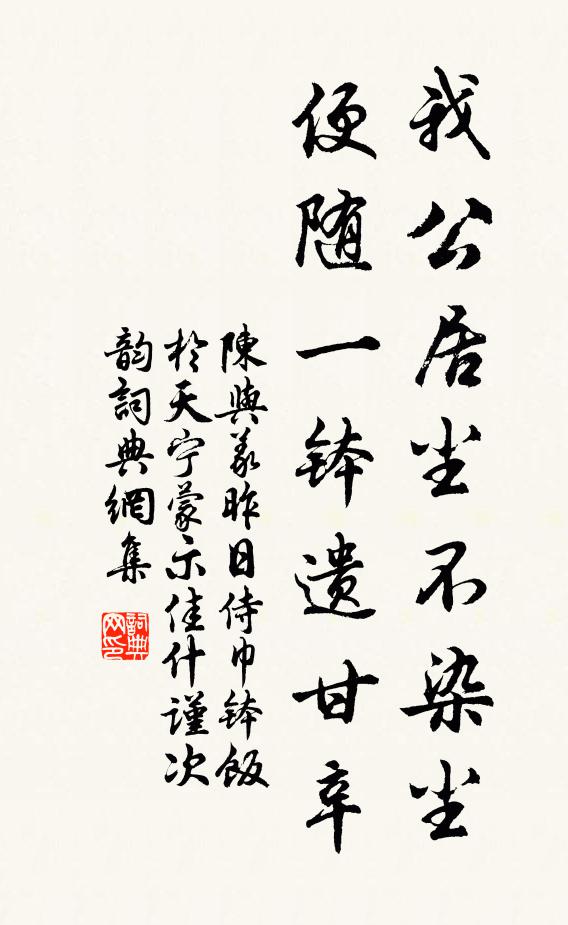 我公居尘不染尘
便随一钵遗甘辛
陳與義昨日侍巾钵飯
於天宁蒙示佳什謹次
韵詞典網集
詞典网印